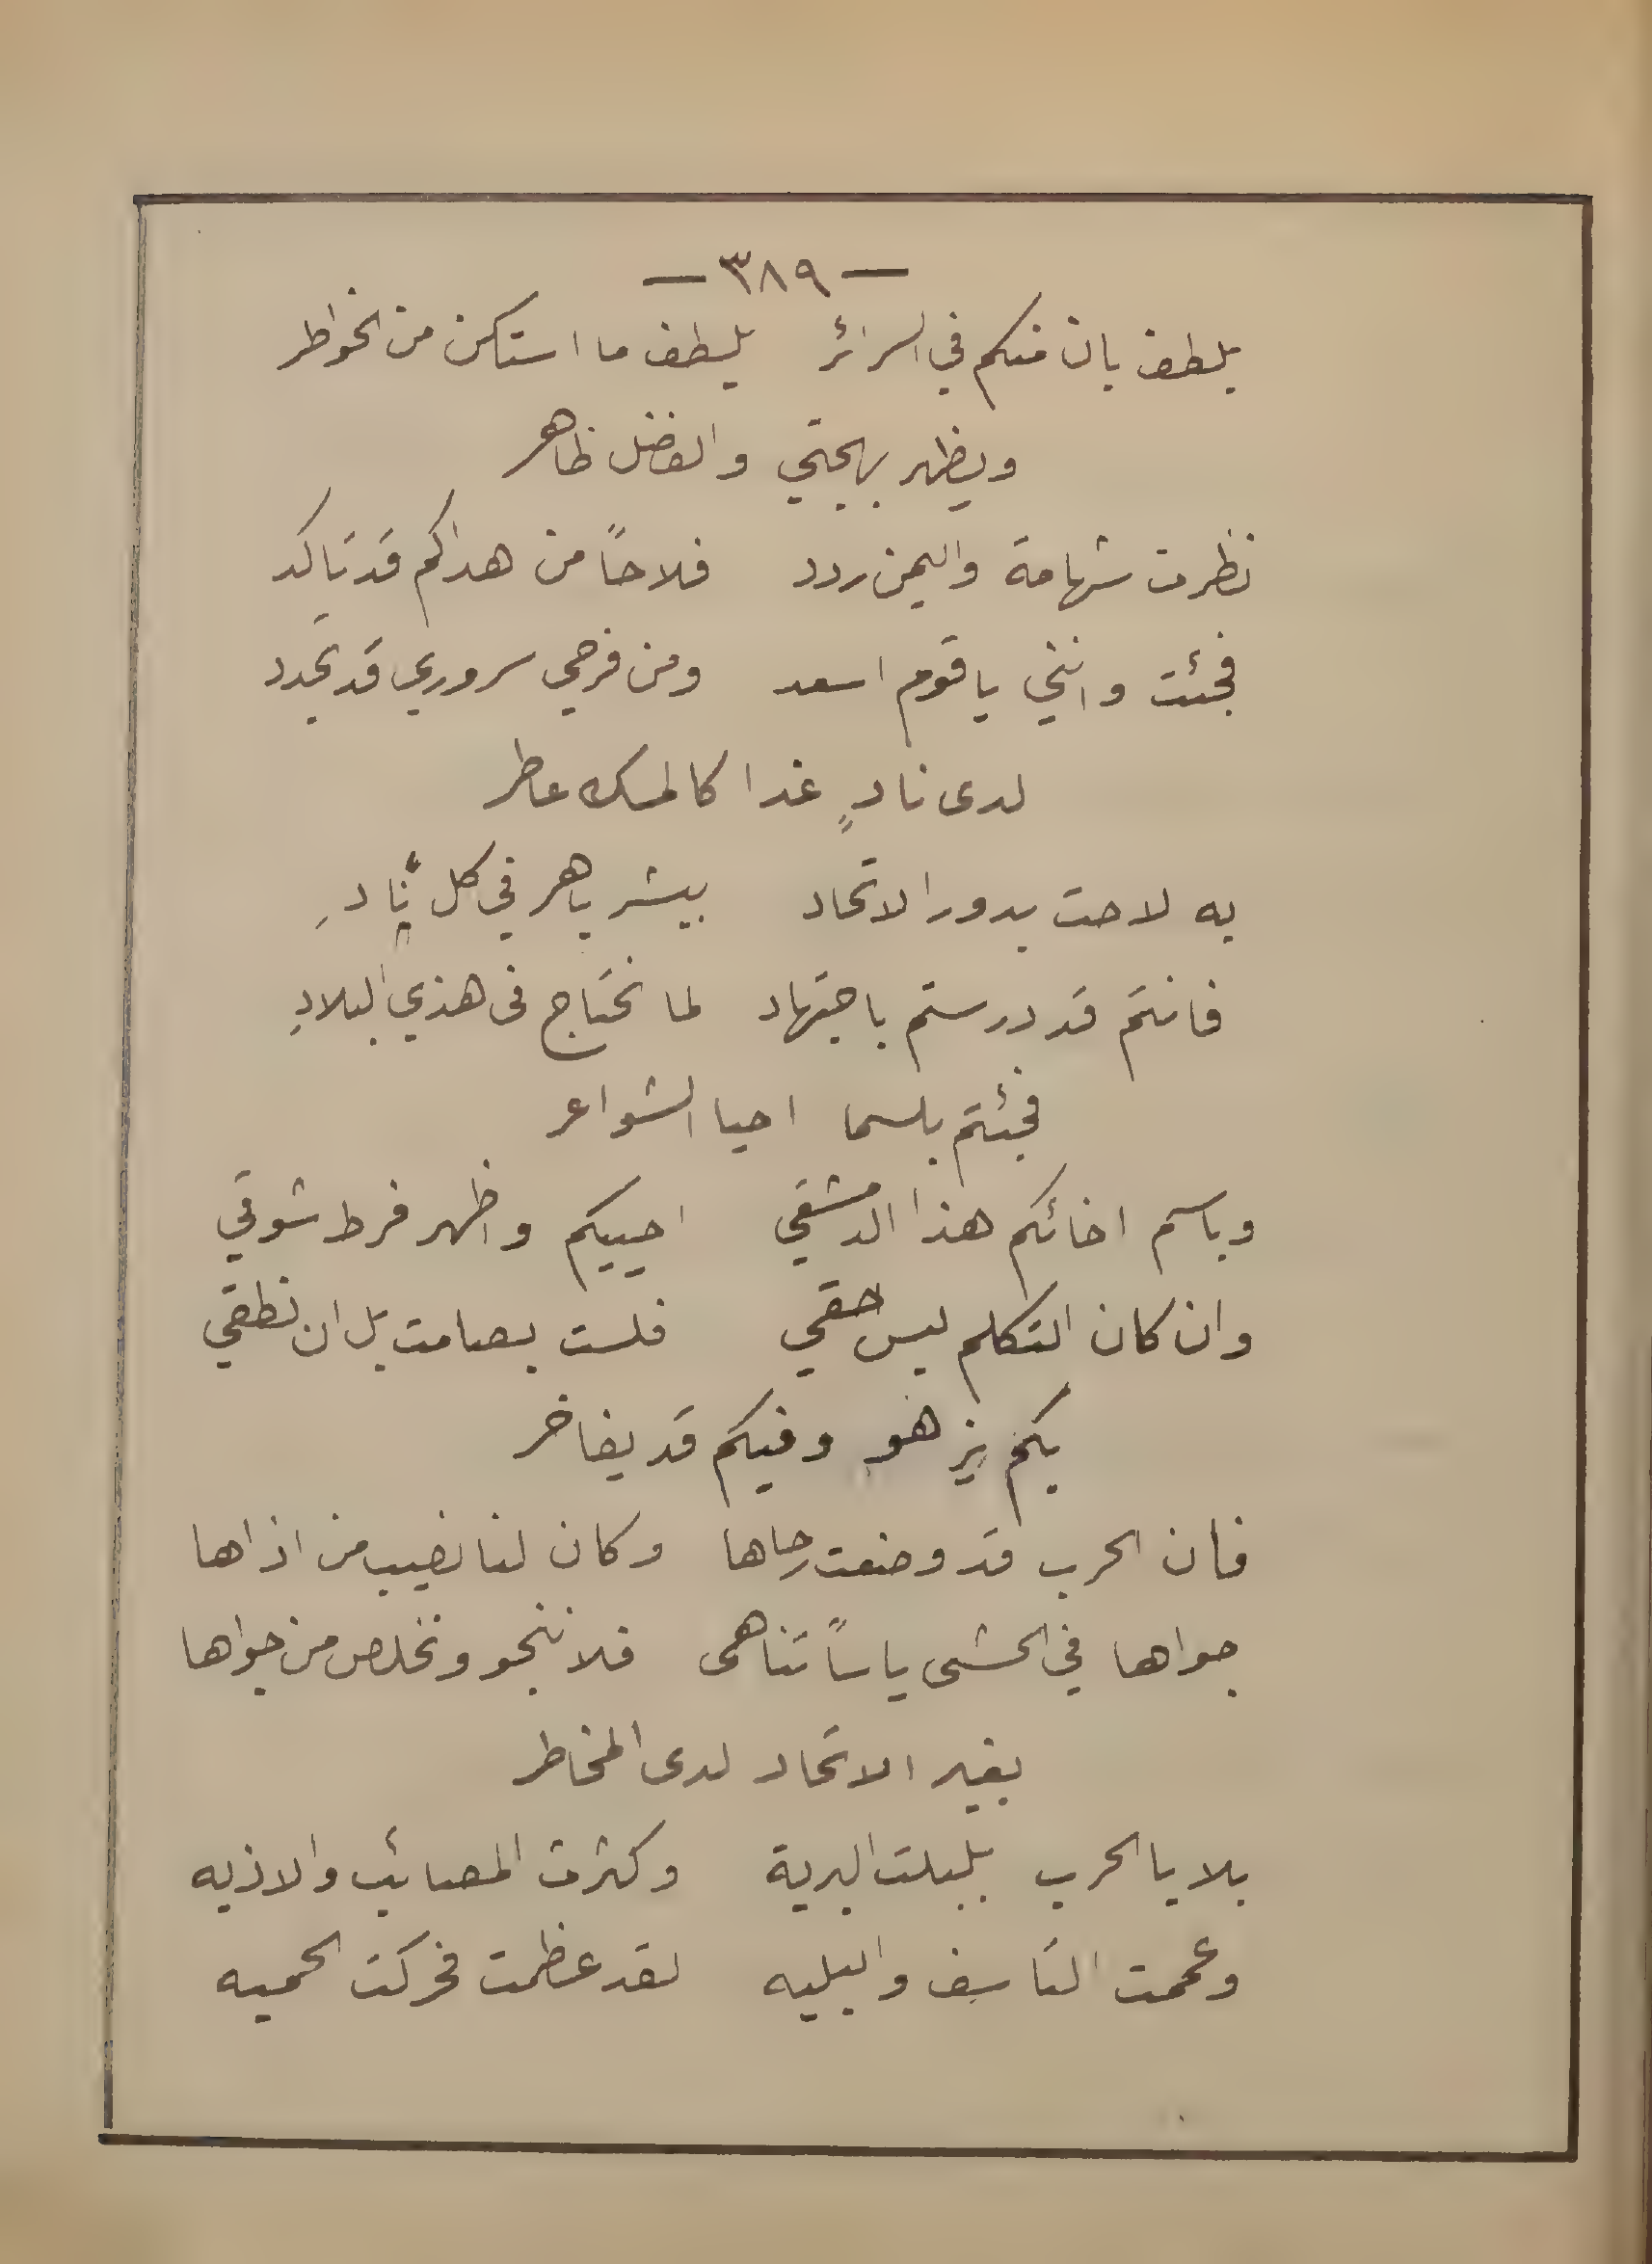 — ٣٨٩ —
بلطف بان منكم في السرائر يلطف ما استكن من الخواطر
ويظهر بهجتي والفضل ظاهر
نظرت شهامة واليمن ردد فلاحاً من هداكم قد تاكد
فجئت وانني يا قوم اسعد ومن فرحي سروري قد تجدد
لدى نادٍ غدا كالمسك عاطر
به لاحت بدور الاتحاد ببشر باهر في كل نادِ
فانتم قد درستم باجتهاد لما نحتاج في هذي البلادِ
فجئتم بلسما احيا الشواعر
وباسم اخائكم هذا الدمشقي احييكم واظهر فرط شوقي
وان كان التكلم ليس حقي فلست بصامت بل ان نطقي
بكم يزهو وفيكم قد يفاخر
فان الحرب قد وضعت رحاها وكان لنا نصيب من اذاها
جواها في الحشى ياساً تناهى فلا ننجو ونخلص من جواها
بغير الاتحاد لدى المخاطر
بلايا الحرب بلبلت البرية وكثرت المصائب والاذيه
وعممت التاسف والبليه لقد عظمت فحركت الحميه